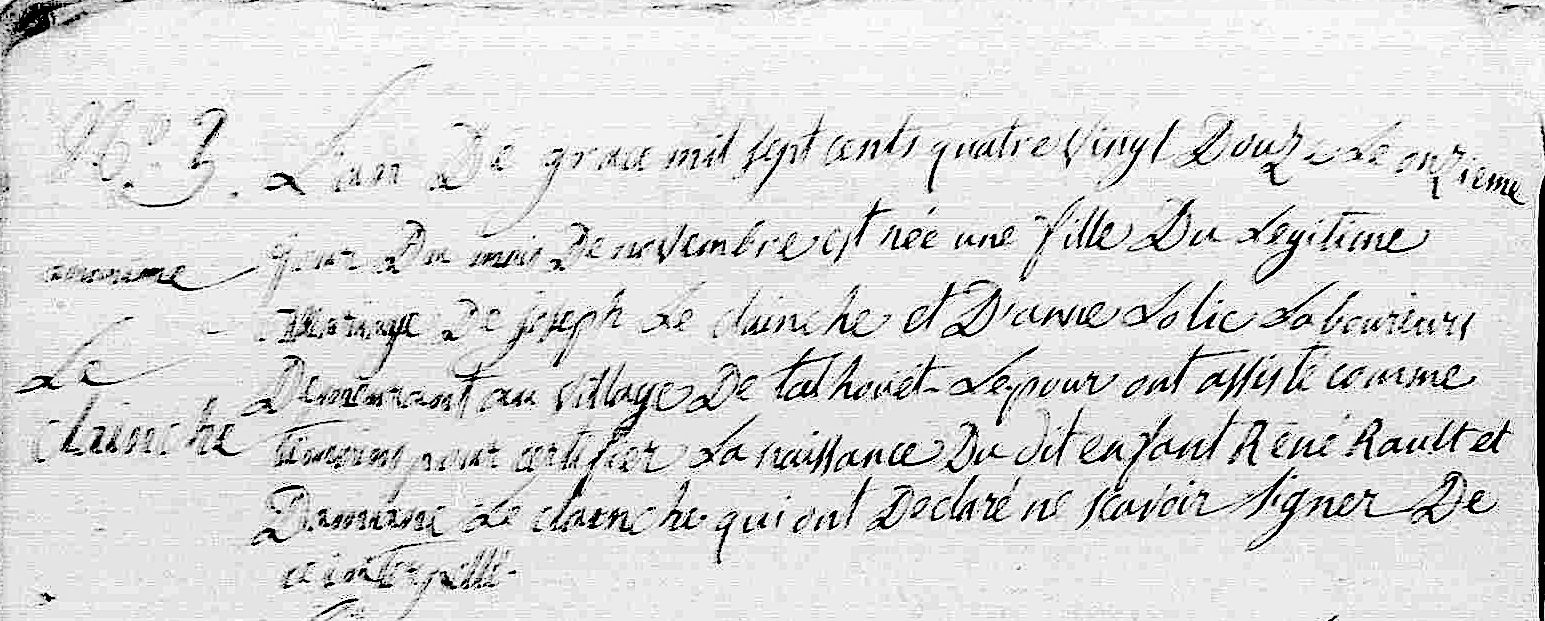 No. 3. L'an De grace mil sept cents quatre vingt Douze Le onzieme
anonime jour Du mois De novembre est née une fille Du Legitime
Mariage De joseph Le clainche et D'anne Lolic Laboureurs
Le Demeurant au village De talhouët-Lepour ont assisté comme
clainche temoins pour certifier La naissance Du dit enfant René Rault et
Damiane Le clainche qui ont Declaré ne scavoir signer De
ce interpellé.